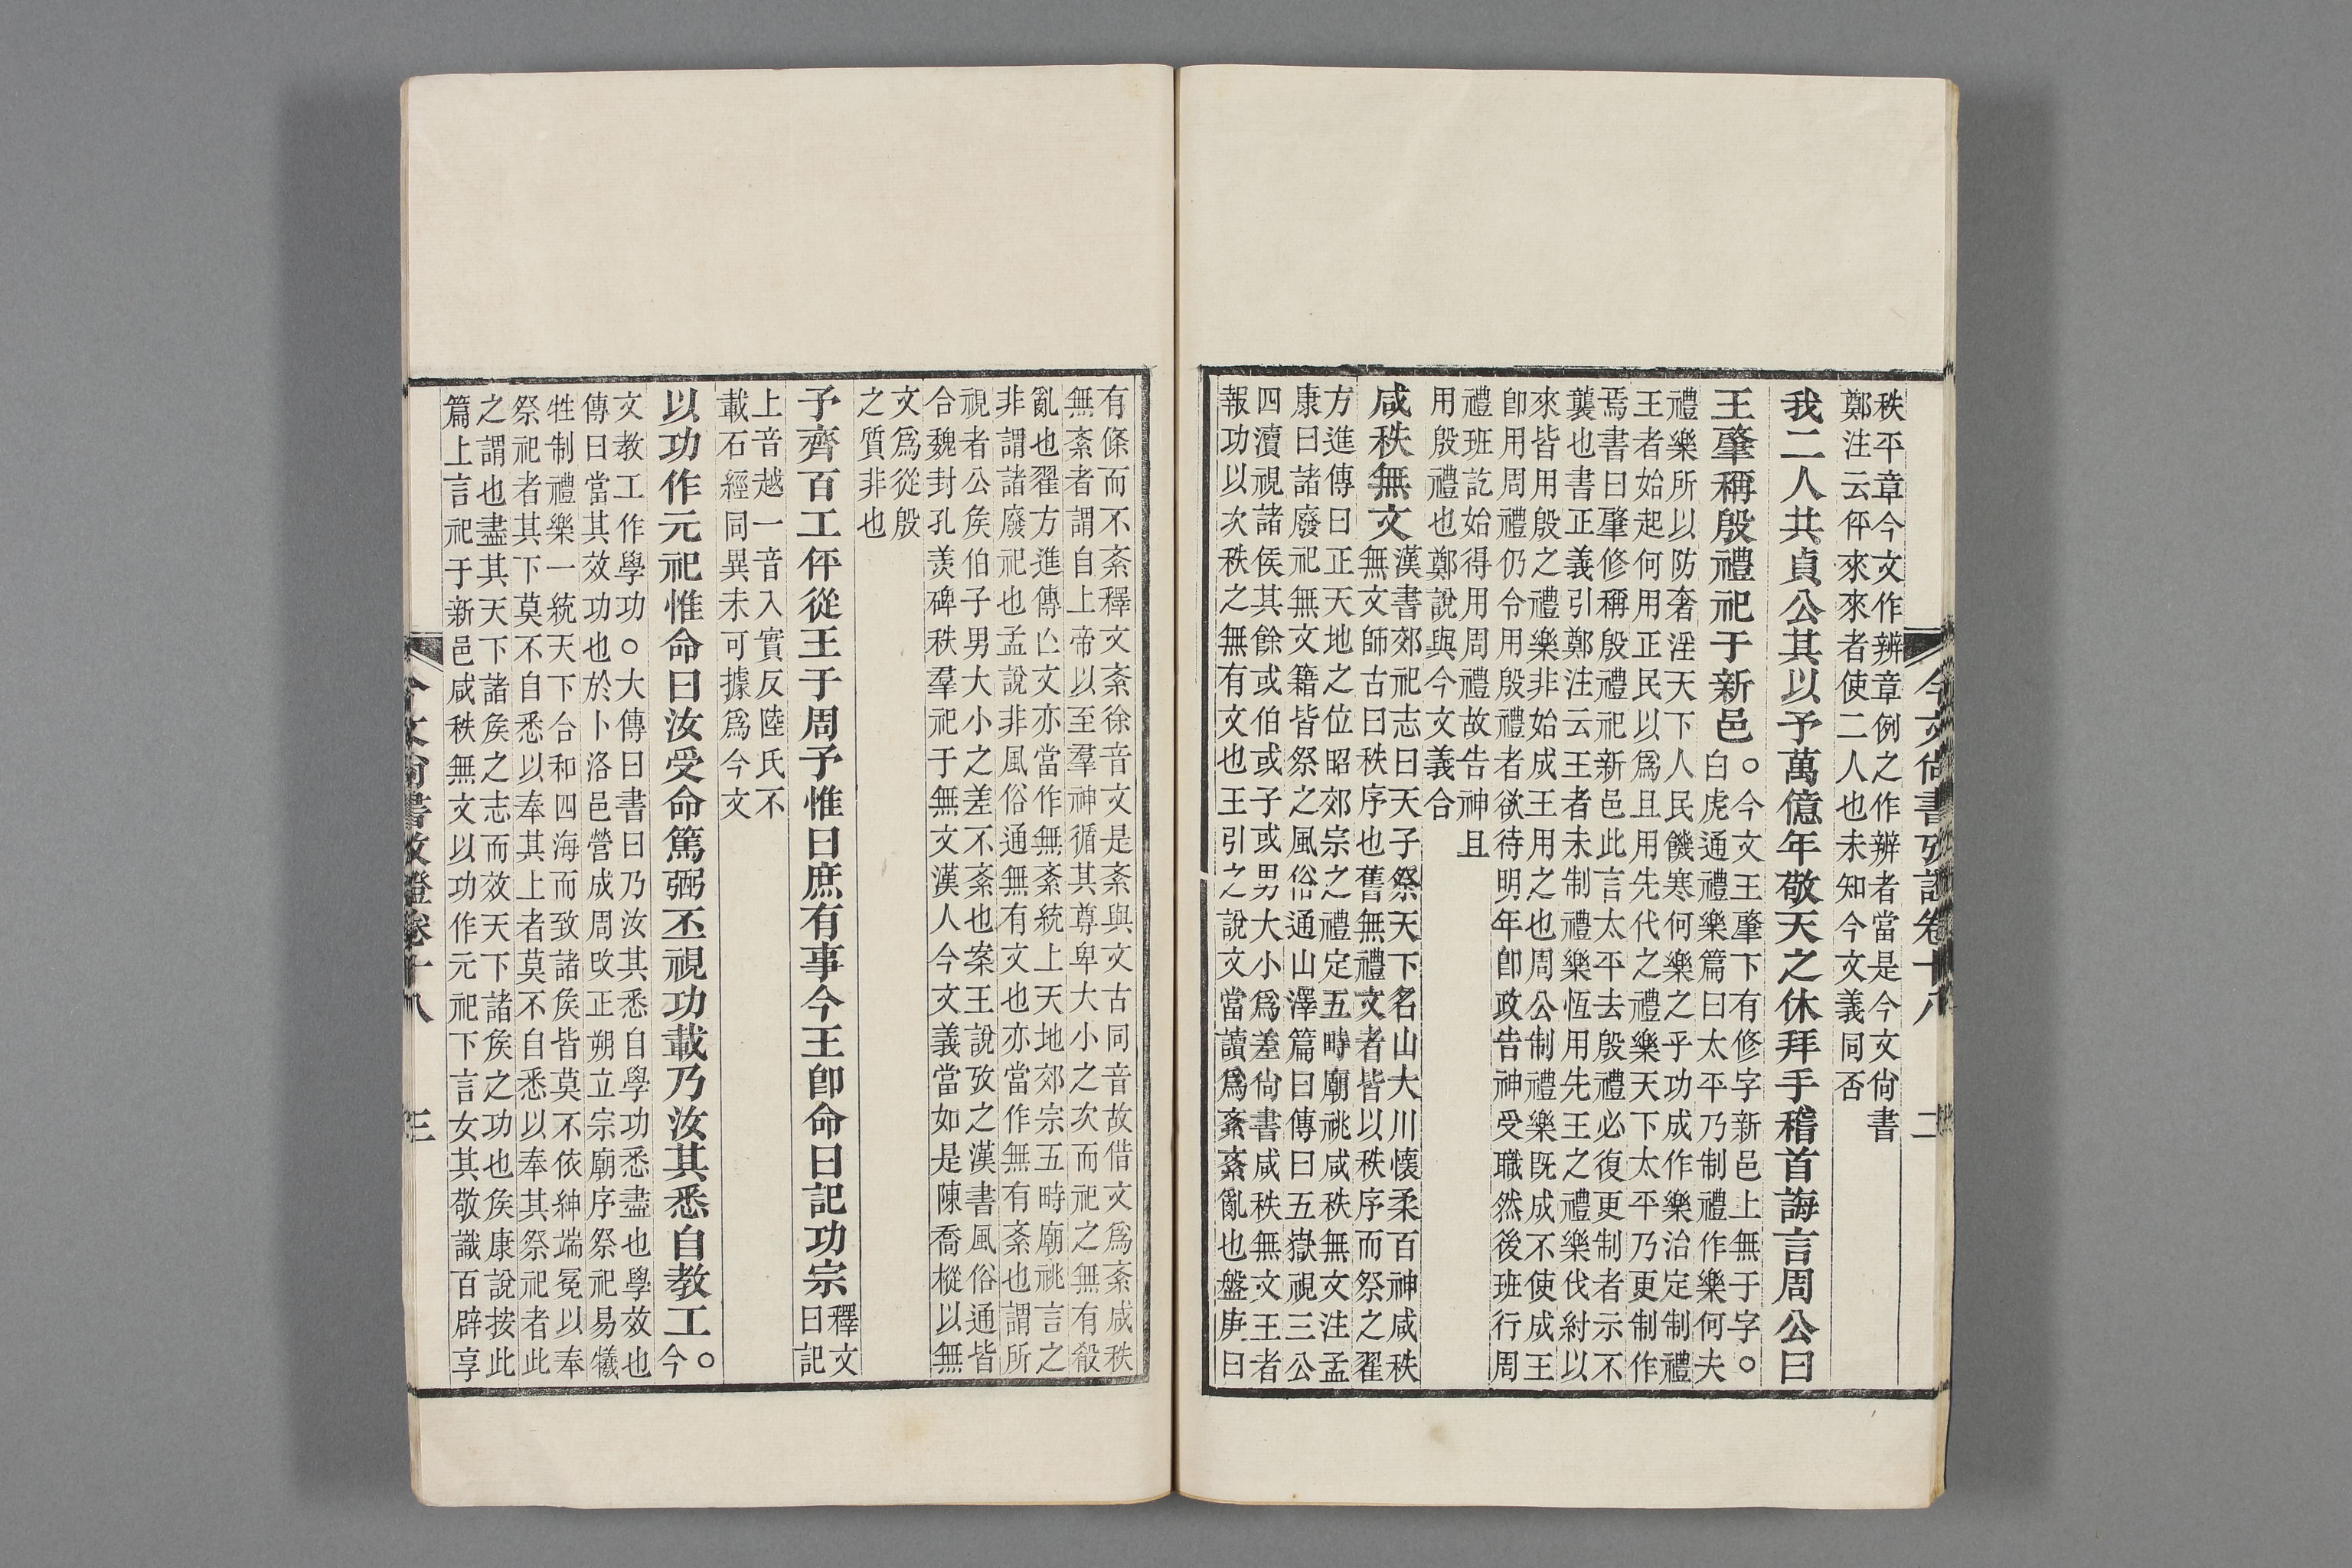 今文尚書攷證卷十八 二
秩平章今文作辨章例之作辨者當是今文尙書
鄭注云伻來來者使二人也未知今文義同否
我二人共貞公其以予萬億年敬天之休拜手稽首誨言周公曰
王肇稱殷禮祀于新邑
○今文王肇下有修字新邑上無于字○
白虎通禮樂篇曰太平乃制禮作樂何夫
禮樂所以防奢淫天下人民饑寒何樂之乎功成作樂治定制禮
王者始起何用正民以爲且用先代之禮樂天下太平乃更制作
焉書曰肇修稱殷禮祀新邑此言太平去殷禮必復更制者示不
襲也書正義引鄭注云王者未制禮樂恆用先王之禮樂伐紂以
來皆用殷之禮樂非始成王用之也周公制禮樂既成不使成王
卽用周禮仍令用殷禮者欲待明年卽政告神受職然後班行周
禮班訖始得用周禮故告神且
用殷禮也鄭說與今文義合
咸秩無文
漢書郊祀志曰天子祭天下名山大川懷柔百神咸秩
無文師古曰秩序也舊無禮文者皆以秩序而祭之翟
方進傳曰正天地之位昭郊宗之禮定五畤廟祧咸秩無文注孟
康曰諸廢祀無文籍皆祭之風俗通山澤篇曰傳曰五嶽視三公
四瀆視諸侯其餘或伯或子或男大小爲差尙書咸秩無文王者
報功以次秩之無有文也王引之說文當讀爲紊紊亂也盤庚曰
有條而不紊釋文紊徐音文是紊與文古同音故借文爲紊咸秩
無紊者謂自上帝以至羣神循其尊卑大小之次而祀之無有殺
亂也翟方進傳亾文亦當作無紊統上天地郊宗五畤廟祧言之
非謂諸廢祀也孟說非風俗通無有文也亦當作無有紊也謂所
視者公矦伯子男大小之差不紊也案王說攷之漢書風俗通皆
合魏封孔羨碑秩羣祀于無文漢人今文義當如是陳喬樅以無
文爲從殷
之質非也
予齊百工伻從王于周予惟曰庶有事今王卽命曰記功宗
釋文
曰記
上音越一音入實反陸氏不
載石經同異未可據爲今文
以功作元祀惟命曰汝受命篤弼丕視功載乃汝其悉自教工
○
今
文教工作學功○大傳曰書曰乃汝其悉自學功悉盡也學效也
傳曰當其效功也於卜洛邑營成周改正朔立宗廟序祭祀易犧
牲制禮樂一統天下合和四海而致諸矦皆莫不依紳端冕以奉
祭祀者其下莫不自悉以奉其上者莫不自悉以奉其祭祀者此
之謂也盡其天下諸矦之志而效天下諸矦之功也矦康說按此
篇上言祀于新邑咸秩無文以功作元祀下言女其敬識百辟享
今文尚書攷證卷十八 三